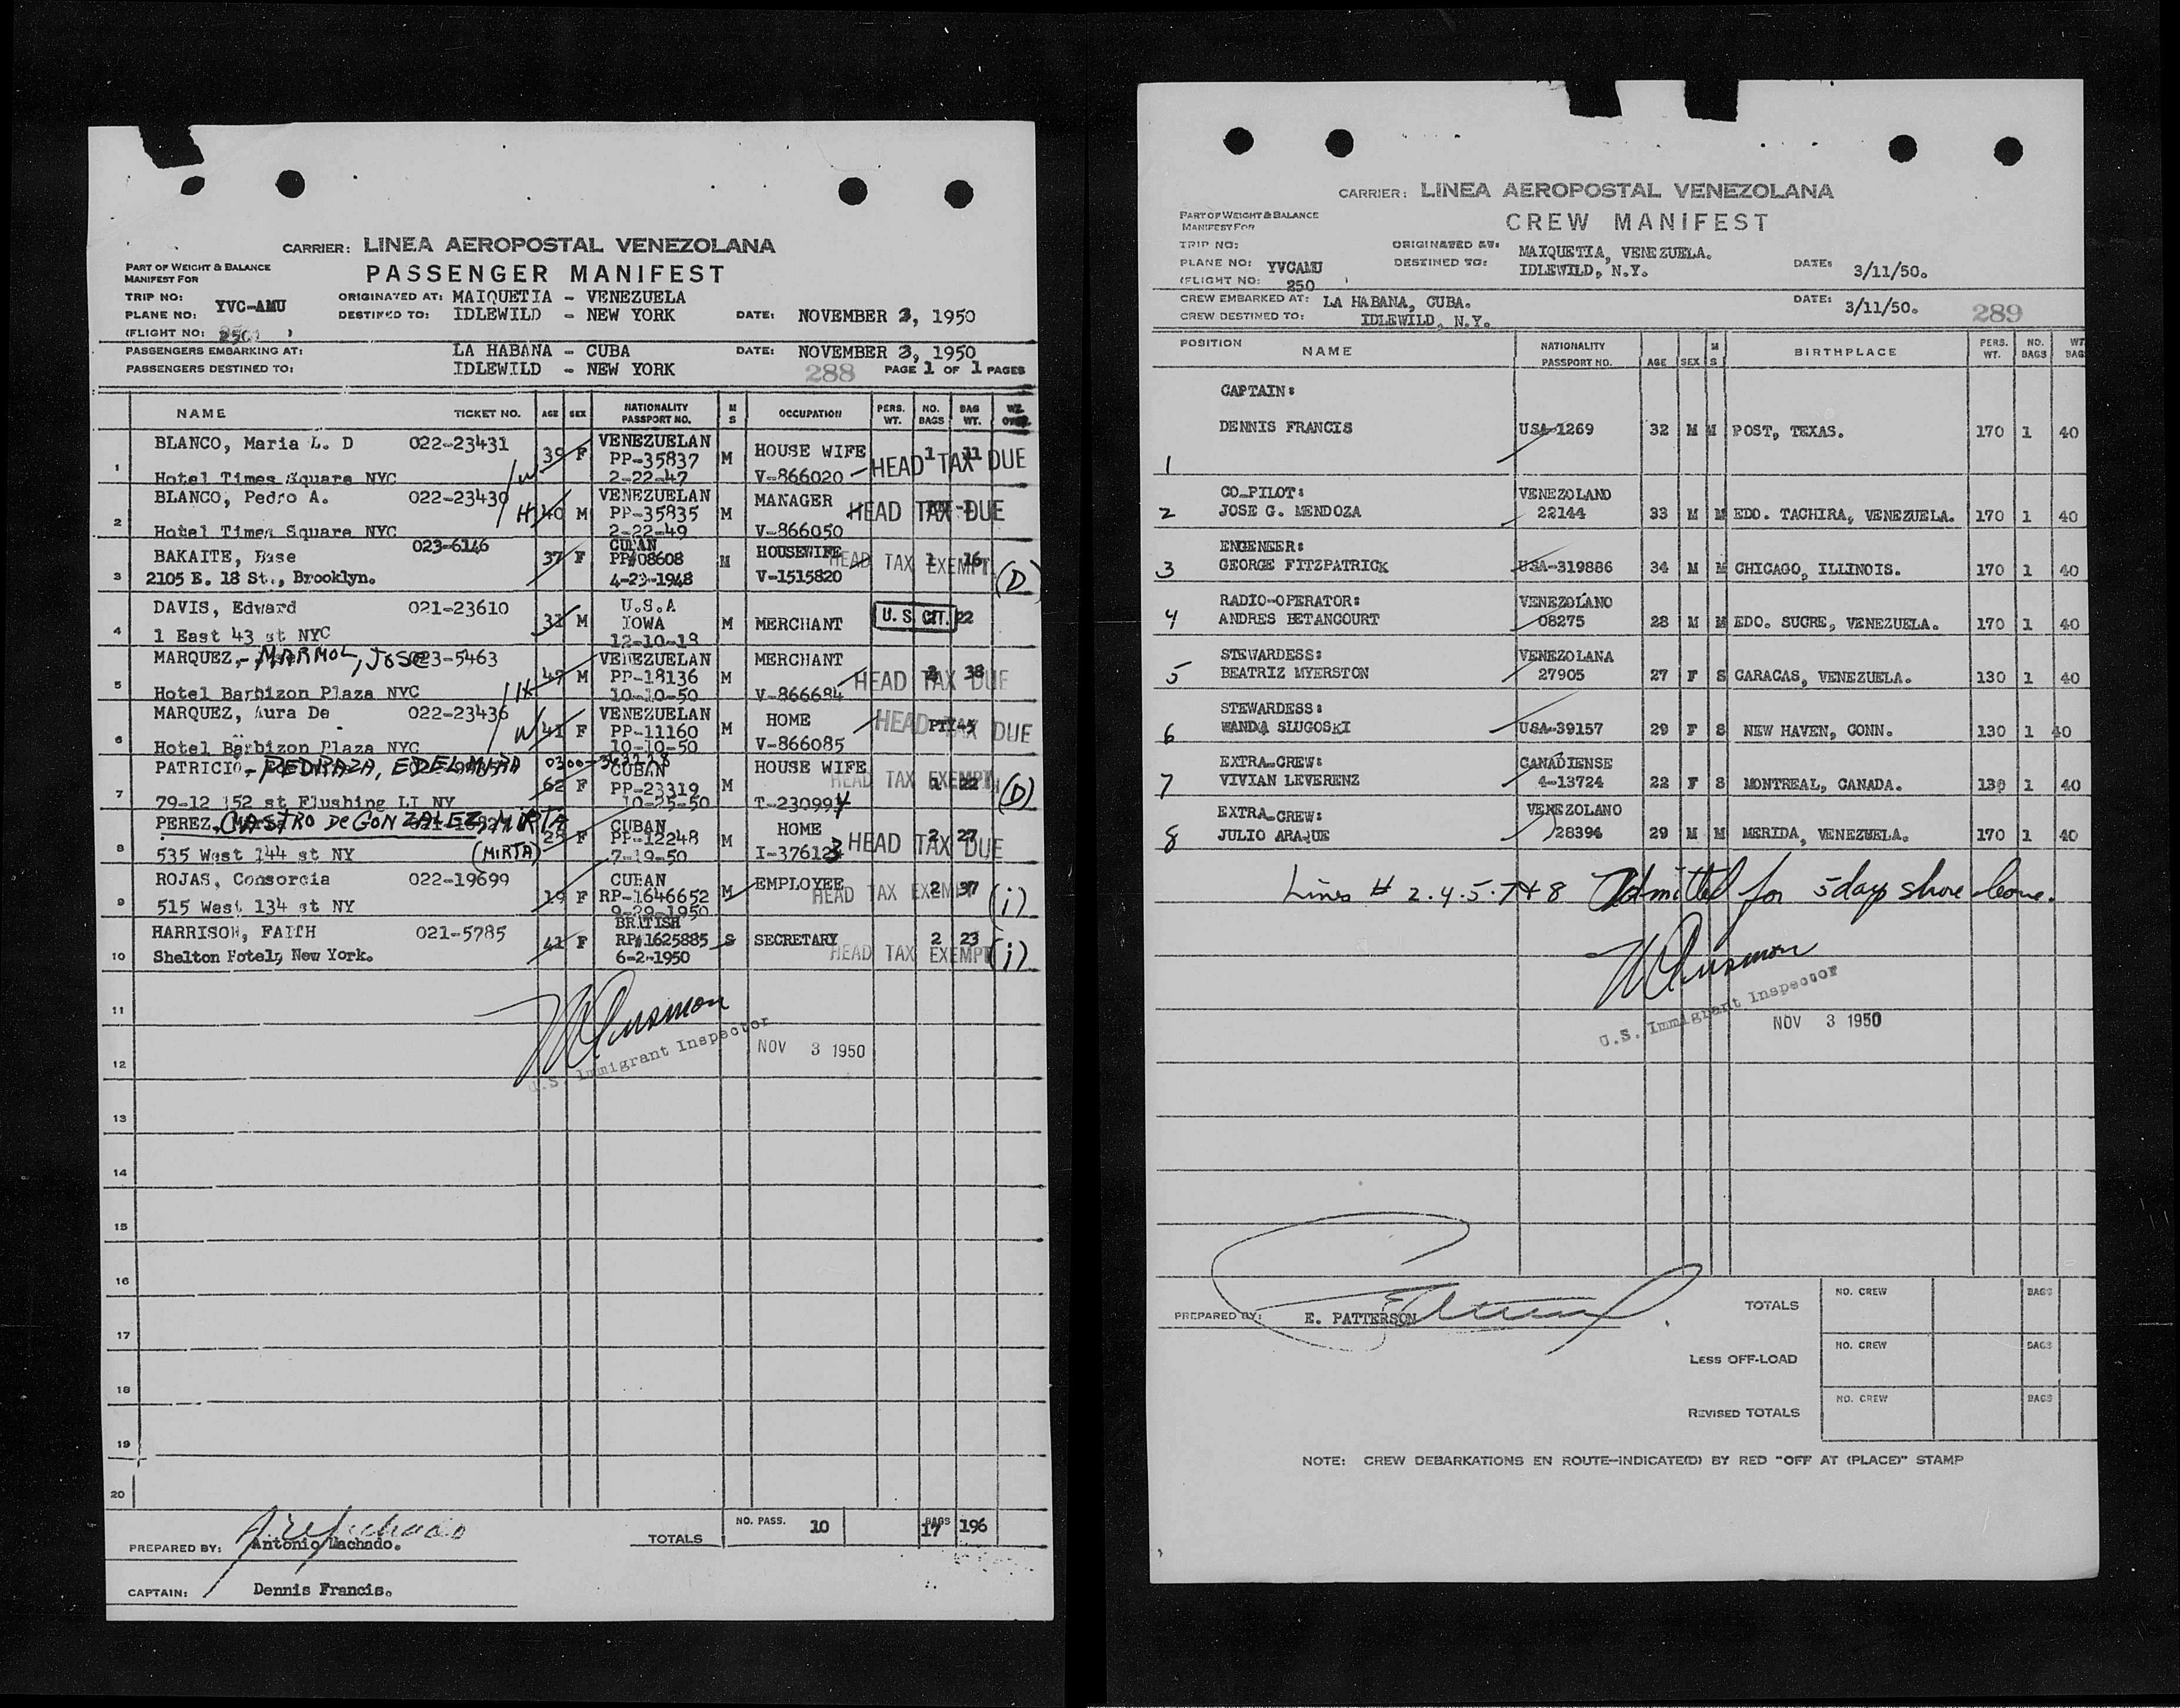 CARRIER: LINEA AEROPOSTAL VENEZOLANA
PASSENGER MANIFEST
PART OF WEIGHT & BALANCE
MANIFEST FOR
TRIP NO:
PLANE NO: YVC-AMU
(FLIGHT NO: )
ORIGINATED AT: MAIQUETIA - VENEZUELA
DESTINED TO: IDLEWILD - NEW YORK DATE: NOVEMBER 3, 1950
PASSENGERS EMBARKING AT: LA HABANA - CUBA DATE: NOVEMBER 3, 1950
PASSENGERS DESTINED TO: IDLEWILD - NEW YORK 288 PAGE 1 OF 1 PAGES
NAME TICKET NO. AGE SEX NATIONALITY PASSPORT NO. M S OCCUPATION PERS. WT. NO. BAGS BAG WT.
BLANCO, Maria L. D 022-23431 VENEZUELAN HOUSE WIFE
1 39 F PP-35837 M 1 11 HEAD TAX DUE
Hotel Times Square NYC W 2-22-47 V-866020
BLANCO, Pedro A. 022-23430 VENEZUELAN MANAGER
2 H 40 M PP-35835 M HEAD TAX DUE
Hotel Times Square NYC 2-22-49 V-866050
BAKAITE, 023-6146 CUBAN HOUSEWIFE
37 F PP#08608 M 1 16 HEAD TAX EXEMPT
3 2105 E. 18 St., Brooklyn. 4-23-1948 V-1515820 (D)
DAVIS, Edward 021-23610 U.S.A U. S. CIT. 22
4 M IOWA M MERCHANT
1 East 43 st NYC 12-10-18
MARQUEZ,- MARMOL, JOSE 023-5463 VENEZUELAN MERCHANT
5 M PP-18136 M 38 HEAD TAX DUE
Hotel Barbizon Plaza NYC H 10-10-50 V-866684
MARQUEZ, Aura De 022-23436 VENEZUELAN HOME
6 W 41 F PP-11160 M HEAD TAX DUE
Hotel Barbizon Plaza NYC 10-10-50 V-866085
PATRICIO- PEDRAZA, EDELMIRA CUBAN HOUSE WIFE
7 62 F PP-23319 M 1 22 HEAD TAX EXEMPT (D)
79-12 152 st Flushing LI NY 10-25-50 T-230994
PEREZ, CASTRO De GONZALEZ, MIRTA CUBAN HOME
8 F PP-12248 M 2 27 HEAD TAX DUE
535 West 144 st NY (MIRTA) 7-19-50 I-376123
ROJAS, Consorcia 022-19699 CUBAN EMPLOYEE
9 19 F RP-1646652 M 2 37 HEAD TAX EXEMPT (i)
515 West 134 st NY 9-29-1950
HARRISON, FAITH 021-5785 BRITISH
41 F RP#1625885 S SECRETARY 2 23
10 Shelton Hotel, New York. 6-2-1950 HEAD TAX EXEMPT (i)
11
U.S. Immigrant Inspector NOV 3 1950
12
13
14
15
16
17
18
19
20
TOTALS NO. PASS. 10 BAGS 17 196
PREPARED BY: Antonio Machado.
CAPTAIN: Dennis Francis.
CARRIER: LINEA AEROPOSTAL VENEZOLANA
CREW MANIFEST
PART OF WEIGHT & BALANCE
MANIFEST FOR
TRIP NO: ORIGINATED AT: MAIQUETIA, VENEZUELA.
PLANE NO: YVCAMU DESTINED TO: IDLEWILD, N.Y. DATE: 3/11/50.
(FLIGHT NO: 250 )
CREW EMBARKED AT: LA HABANA, CUBA. DATE: 3/11/50.
CREW DESTINED TO: IDLEWILD, N.Y. 289
POSITION NAME NATIONALITY PASSPORT NO. AGE SEX M S BIRTHPLACE PERS. WT. NO. BAGS WT BAG
CAPTAIN:
DENNIS FRANCIS USA-1269 32 M M POST, TEXAS. 170 1 40
1
CO-PILOT: VENEZOLANO
2 JOSE G. MENDOZA 22144 33 M M EDO. TACHIRA, VENEZUELA. 170 1 40
ENGENEER:
3 GEORGE FITZPATRICK USA-319886 34 M M CHICAGO, ILLINOIS. 170 1 40
RADIO-OPERATOR: VENEZOLANO
4 ANDRES BETANCOURT 08275 28 M M EDO. SUCRE, VENEZUELA. 170 1 40
STEWARDESS: VENEZOLANA
5 BEATRIZ MYERSTON 27905 27 F S CARACAS, VENEZUELA. 130 1 40
STEWARDESS:
6 WANDA SLUGOSKI USA-39157 29 F S NEW HAVEN, CONN. 130 1 40
EXTRA-CREW: CANADIENSE
7 VIVIAN LEVERENZ 4-13724 22 F S MONTREAL, CANADA. 130 1 40
EXTRA-CREW: VENEZOLANO
8 JULIO ARAQUE 28394 29 M M MERIDA, VENEZUELA. 170 1 40
Lines # 2.4.5.7+8 Admitted for 5 day shore leave.
U.S. Immigrant Inspector
NOV 3 1950
PREPARED BY: E. PATTERSON
TOTALS NO. CREW BAGS
LESS OFF-LOAD NO. CREW BAGS
REVISED TOTALS NO. CREW BAGS
NOTE: CREW DEBARKATIONS EN ROUTE-INDICATE(D) BY RED "OFF AT (PLACE)" STAMP